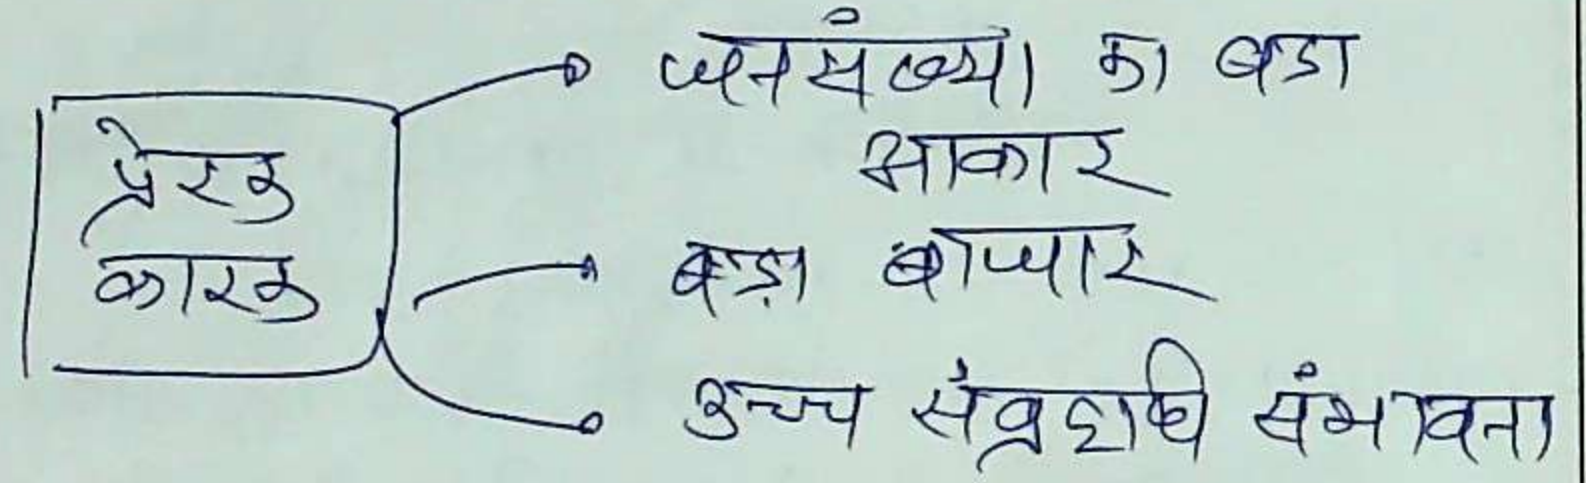 प्रेरक
कारक
जनसंख्या का बडा
आकार
बड़ा बाजार
उच्च संवृद्धि संभावना